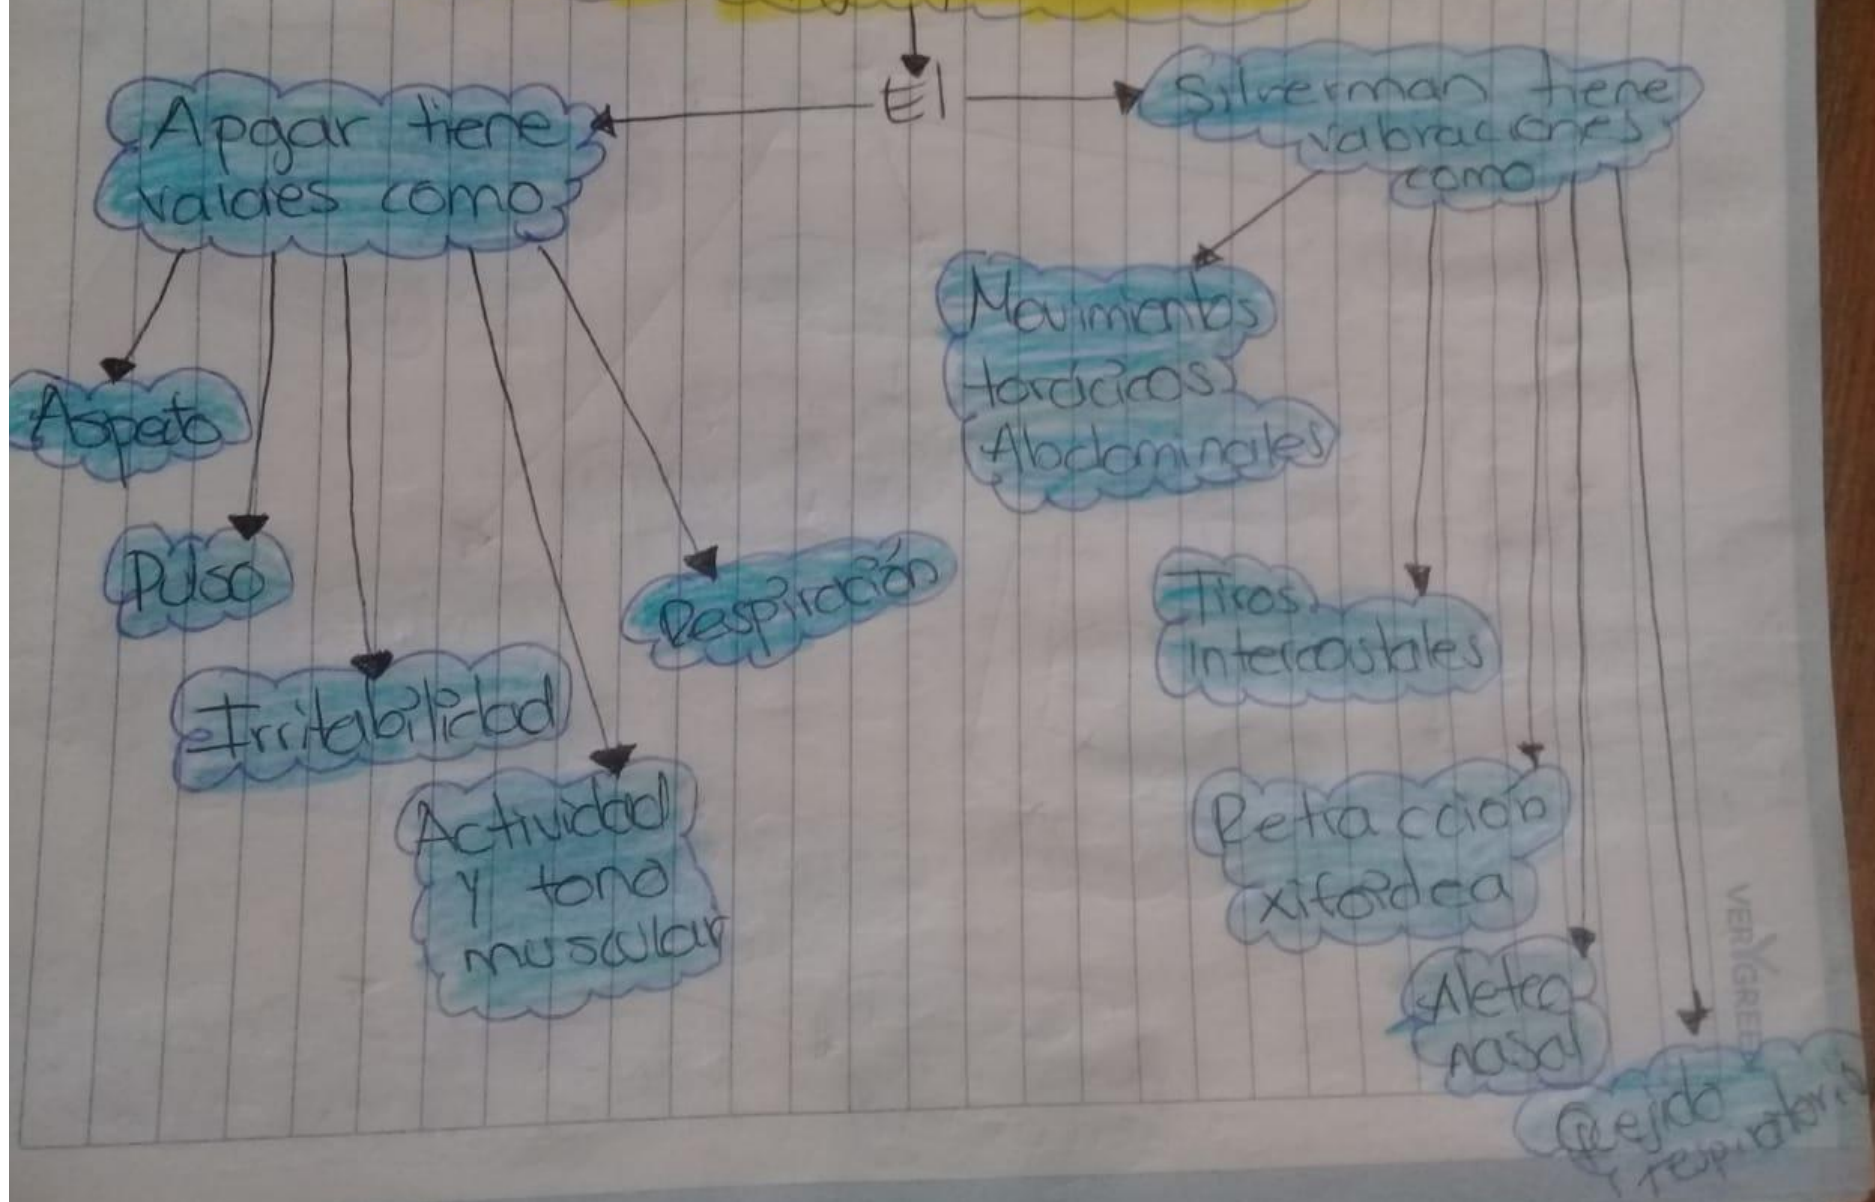 El
Apgar tiene
valores como
Aspecto
Pulso
Irritabilidad
Actividad
y tono
muscular
Respiración
Silverman tiene
valoraciones
como
Movimientos
torácicos
Abdominales
Tiros
intercostales
Retracción
xifoidea
Aleteo
nasal
Quejido
respiratorio
VERYGREE